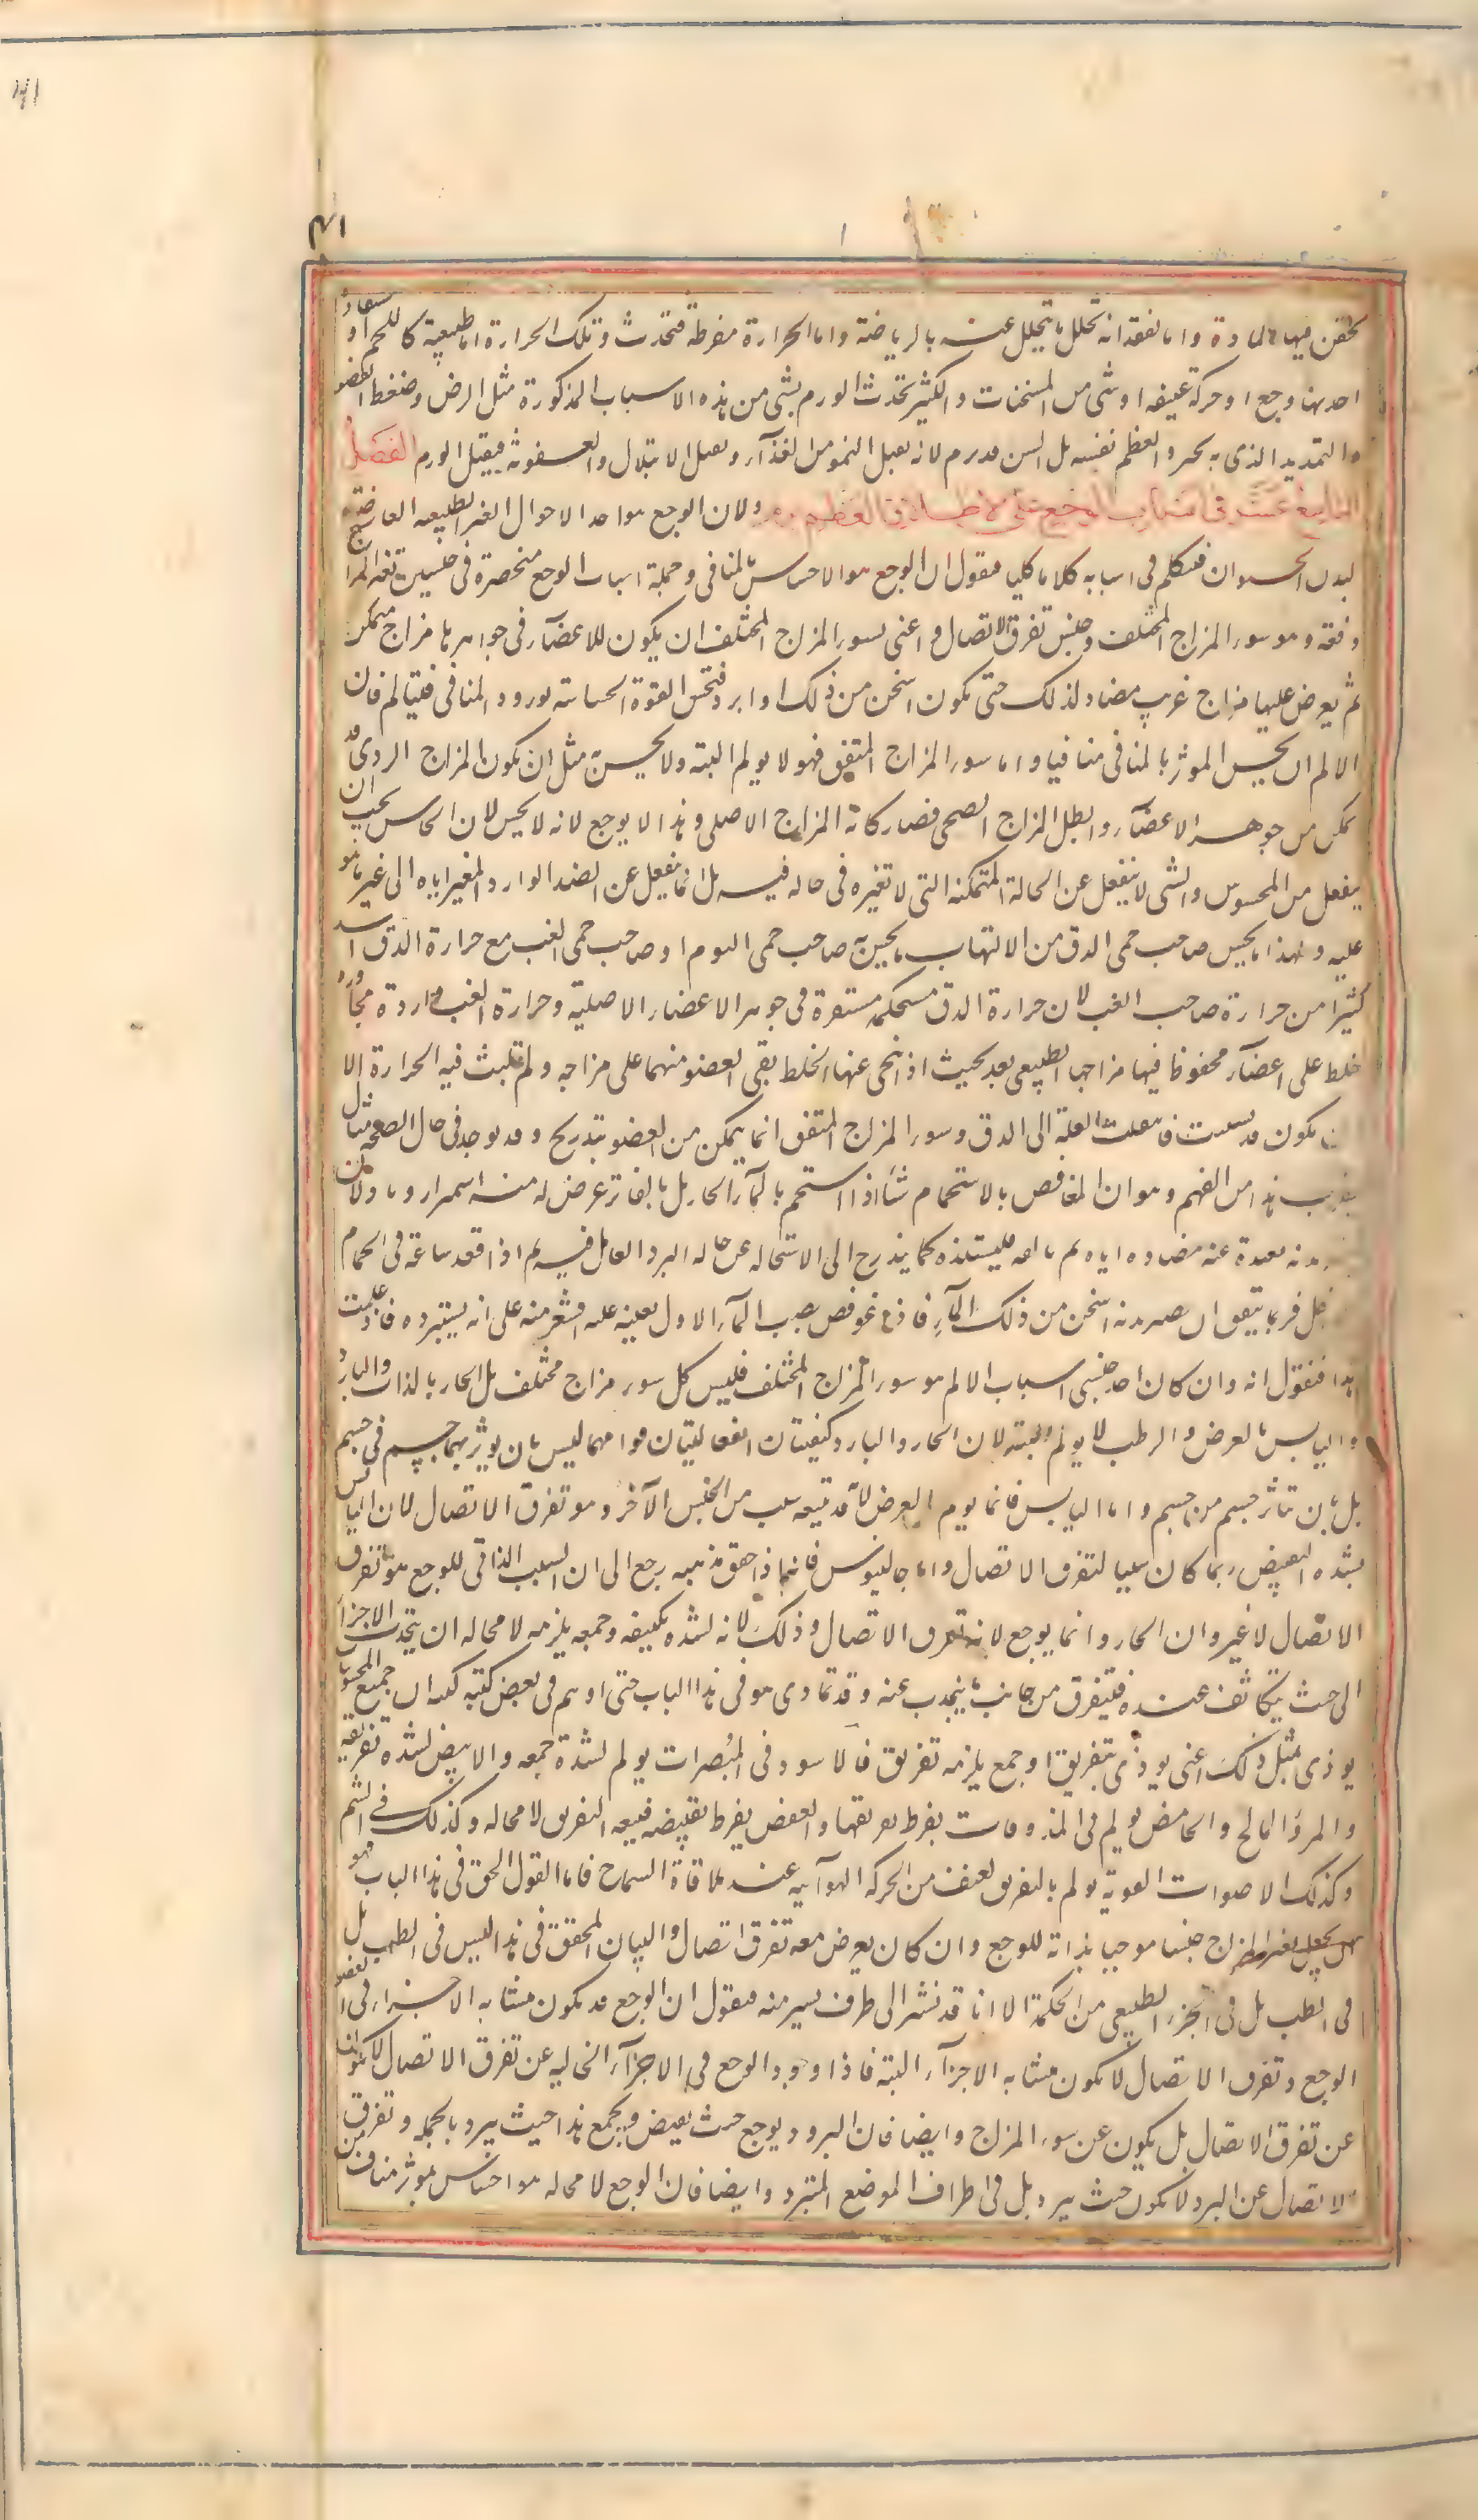 ۴۱
۴۱
واما لفقدانه تحلل ما يتحلل عنه بالرياضة واما لحرارة مفرطة فتحدث وتلك الحرارة اما طبيعية كاللحم او مستعارة
احدثها وجع او حركة عنيفة او شئ من المسخنات والكثير تحدث الورم بشئ من هذه الاسباب المذكورة مثل الرض وضغط العضو
والتمديد الذى به والعظم نفسه بل السن قد يرم لانه يقبل النمو من الغذآء ويقبل الابتلال والعفونة فيقبل الورم الفصل
فى اسباب الوجع على الاطلاق ولان الوجع هو احد الاحوال الغير الطبيعية العارضة
لبدن الحيوان فنتكلم فى اسبابه كلاما كليا فنقول ان الوجع هو الاحساس بالمنافى وجملة اسباب الوجع منحصرة فى جنسين تغير المزاج
دفعة وهو سوء المزاج المختلف وجنس تفرق الاتصال واعنى بسوء المزاج المختلف ان يكون للاعضآء فى جواهرها مزاج متمكن
ثم يعرض عليها مزاج غريب مضاد لذلك حتى يكون اسخن من ذلك او ابرد فتحس القوة الحساسة بورود المنافى فيتألم فان
الالم ان يحس المؤثر بالمنافى منافيا واما سوء المزاج المتفق فهو لا يولم البتة ولا يحس به مثل ان يكون المزاج الردى قد
تمكن من جوهر الاعضآء وابطل المزاج الصحى فصار كانه المزاج الاصلى وهذا لا يوجع لانه لا يحس لان الحاس يجب ان
ينفعل من المحسوس والشى لا ينفعل عن الحالة المتمكنة التى لا تغيره فى حالة فيه بل انما ينفعل عن الضد الوارد المغير اياه الى غير ما هو
عليه ولهذا ما يحس صاحب حمى الدق من الالتهاب ما يحس به صاحب حمى اليوم او صاحب حمى الغب مع حرارة الدق اشد
كثيرا من حرارة صاحب الغب لان حرارة الدق مستحكمة مستقرة فى جوهر الاعضاء الاصلية وحرارة الغب واردة من مجاورة
خلط على اعضآء محفوظ فيها مزاجها الطبيعى بعد بحيث اذا تنحى عنها الخلط بقى العضو منها على مزاجه ولم تلبث فيه الحرارة الا
ان يكون قد فانتقلت العلة الى الدق وسوء المزاج المتفق انما يتمكن من العضو بتدريج وقد يوجد فى حال الصحة مثال
يقرب هذا من الفهم وهو ان المغافص بالاستحمام شتآ اذا استحم بالمآء الحار بل بالفاتر عرض له منه اشمئزاز وتاذ لان
بدنه بعيدة عنه مضادة اياه ثم يألفه فيستلذه كما يتدرج الى الاستحالة عن حالة البرد العامل فيه ثم اذا قعد ساعة فى الحمام
الداخل فربما يتفق ان يصير بدنه اسخن من ذلك المآء فاذا غوفص بصب المآء الاول بعينه عليه اقشعر منه على انه يستبرده فاذا علمت
هذا فنقول انه وان كان احد جنسى اسباب الالم هو سوء المزاج المختلف فليس كل سوء مزاج مختلف بل الحار بالذات والبارد
واليابس بالعرض والرطب لا يولم البتة لان الحار والبارد كيفيتان قوامهما ليس بان يوثر بهما جسم فى جسم
بل بان تتاثر جسم من جسم واما اليابس فانما يولم بالعرض لانه قد يتبعه سبب من الجنس الآخر وهو تفرق الاتصال لان اليابس
لشدة التقبيض ربما كان سببا لتفرق الاتصال واما جالينوس فانه اذا حقق مذهبه رجع الى ان السبب الذاتى للوجع هو تفرق
الاتصال لا غير وان الحار انما يوجع لانه تفرق الاتصال وذلك لانه لشدة تكثيفه وجمعه يلزمه لا محالة ان يتجذب الاجزآء
الى حيث يتكاثف عنده فيتفرق من جانب ما ينجذب عنه وقد تمادى هو فى هذا الباب حتى اوهم فى بعض كتبه ان جميع المحسوسات
يوذى بمثل ذلك اعنى يوذى بتفريق او جمع يلزمه تفريق فالاسود فى المبصرات يولم لشدة جمعه والابيض لشدة تفريقه
والمر والمالح والحامض يولم فى المذوقات بفرط تفريقها والعفص بفرط تقبيضه فيتبعه التفريق لا محالة وكذلك فى الشم
وكذلك الاصوات القوية تولم بالتفريق لعنف من الحركة الهوآئية عند ملاقاة السماح فاما القول الحق فى هذا الباب فهو
ان يجعل تغير المزاج جنسا موجبا بذاته للوجع وان كان يعرض معه تفرق اتصال والبيان المحقق فى هذا ليس فى الطب بل
فى الطب بل فى الجزء الطبيعى من الحكمة الا انا قد نشير الى طرف يسير منه فنقول ان الوجع قد يكون متشابه الاجزاء فى العضو
الوجع وتفرق الاتصال لا يكون متشابه الاجزآء البتة فاذا وجود الوجع فى الاجزآء الخالية عن تفرق الاتصال لا يكون
عن تفرق الاتصال بل يكون عن سوء المزاج وايضا فان البرد يوجع حيث يقبض ويجمع هذا حيث يبرد بالجملة وتفرق
الاتصال عن البرد لا يكون حيث يبرد بل فى اطراف الموضع المتبرد وايضا فان الوجع لا محالة هو احساس بموثر مناف من